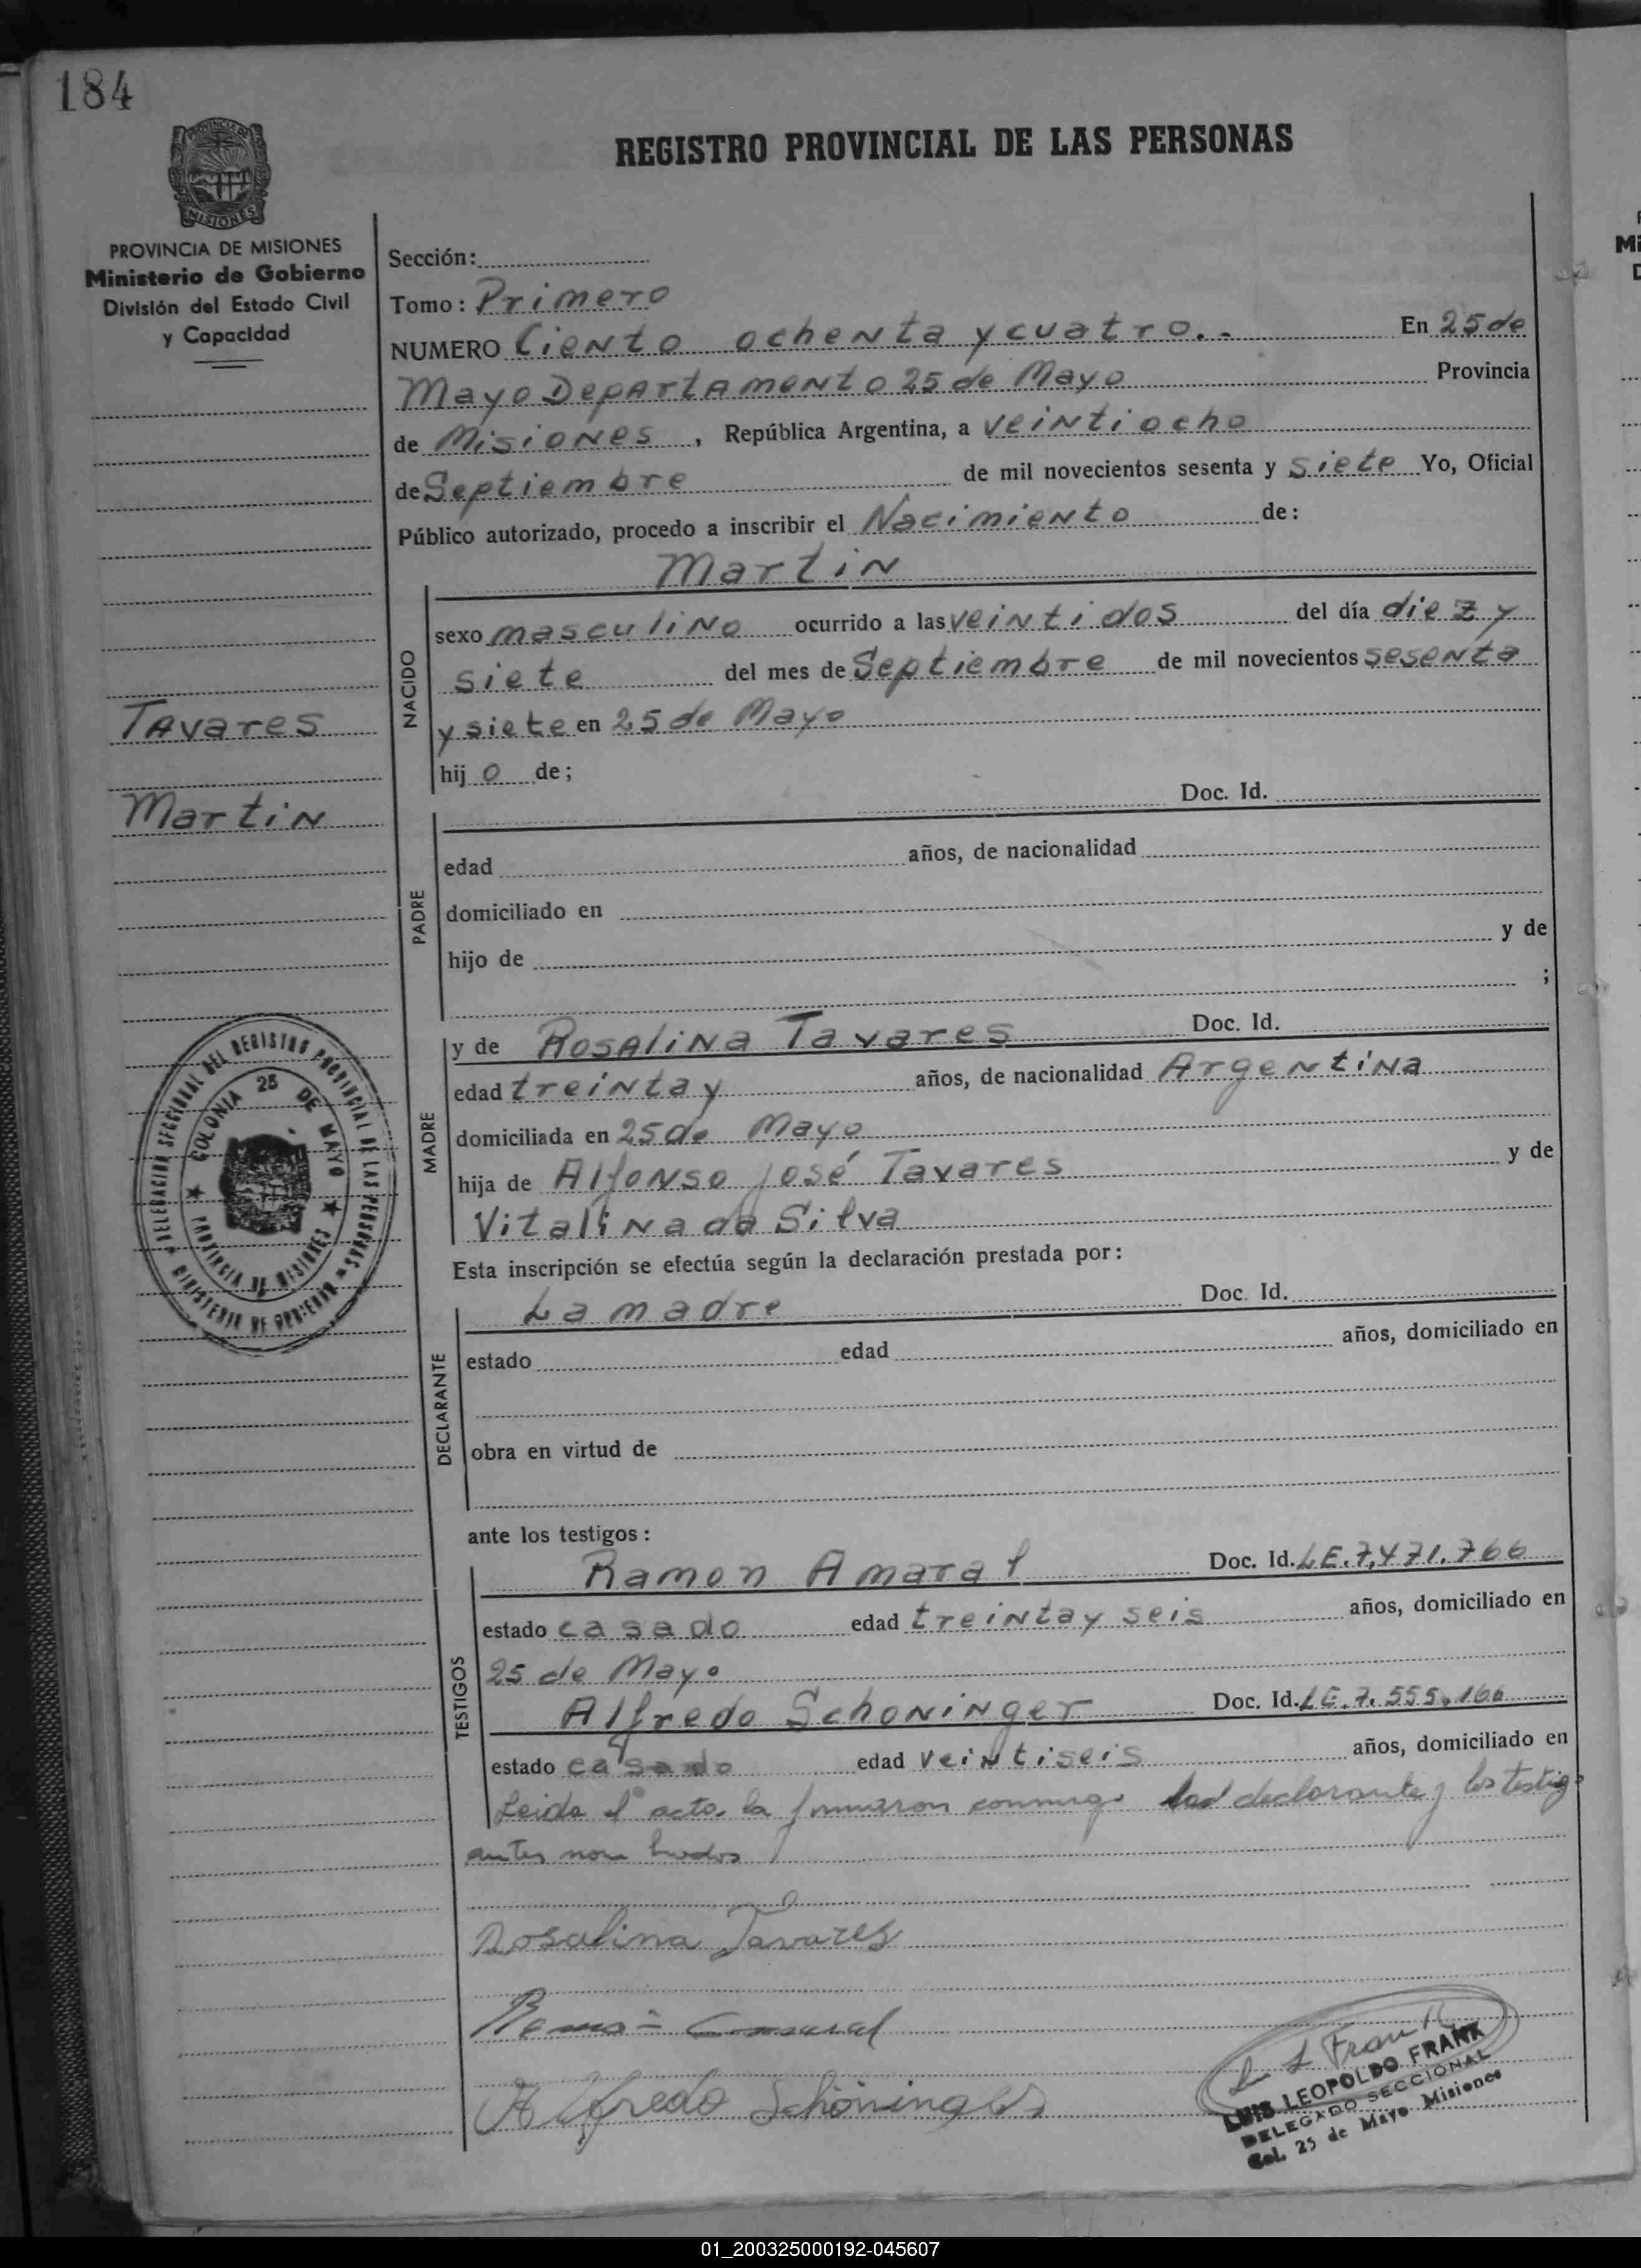 184
PROVINCIA DE
MISIONES
REGISTRO PROVINCIAL DE LAS PERSONAS
PROVINCIA DE MISIONES
Ministerio de Gobierno
División del Estado Civil
y Capacidad
Sección:
Tomo: Primero
NUMERO Ciento ochenta y cuatro.- En 25 de
Mayo Departamento 25 de Mayo Provincia
de Misiones, República Argentina, a veintiocho
de Septiembre de mil novecientos sesenta y siete Yo, Oficial
Público autorizado, procedo a inscribir el Nacimiento de:
Martin
NACIDO
sexo masculino ocurrido a las veintidos del día diez y
siete del mes de Septiembre de mil novecientos sesenta
y siete en 25 de Mayo
hijo de;
Tavares
Martin
Doc. Id.
PADRE
edad años, de nacionalidad
domiciliado en
hijo de y de
;
MADRE
y de Rosalina Tavares Doc. Id.
edad treinta y años, de nacionalidad Argentina
domiciliada en 25 de Mayo
hija de Alfonso José Tavares y de
Vitalina da Silva
DELEGACION SECCIONAL DEL REGISTRO PROVINCIAL DE LAS PERSONAS
MINISTERIO DE GOBIERNO
COLONIA 25 DE MAYO
PROVINCIA DE MISIONES
Esta inscripción se efectúa según la declaración prestada por:
DECLARANTE
La madre Doc. Id.
estado edad años, domiciliado en
obra en virtud de
ante los testigos:
TESTIGOS
Ramon Amaral Doc. Id. LE.7,471.766
estado casado edad treinta y seis años, domiciliado en
25 de Mayo
Alfredo Schoninger Doc. Id. LE.7.555.166
estado casado edad veintiseis años, domiciliado en
Leida el acta la firmaron conmigo declarante y los testig
antes nombrados
Rosalina Tavares
Alfredo Schöninger
L Frank
LUIS LEOPOLDO FRANK
DELEGADO SECCIONAL
Col. 25 de Mayo Misiones
01_200325000192-045607